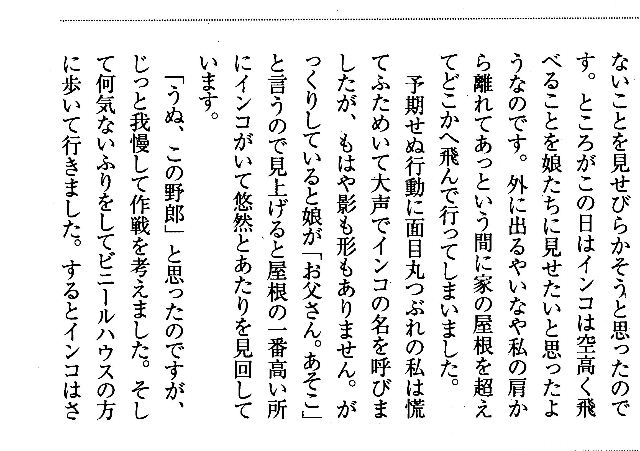 ないことを見せびらかそうと思ったので
す。ところがこの日はインコは空高く飛
べることを娘たちに見せたいと思ったよ
うなのです。外に出るやいなや私の肩か
ら離れてあっという間に家の屋根を超え
てどこかへ飛んで行ってしまいました。
　予期せぬ行動に面目丸つぶれの私は慌
てふためいて大声でインコの名を呼びま
したが、もはや影も形もありません。が
っくりしていると娘が「お父さん。あそこ」
と言うので見上げると屋根の一番高い所
にインコがいて悠然とあたりを見回して
います。
　「うぬ、この野郎」と思ったのですが、
じっと我慢して作戦を考えました。そし
て何気ないふりをしてビニールハウスの方
に歩いて行きました。するとインコはさ